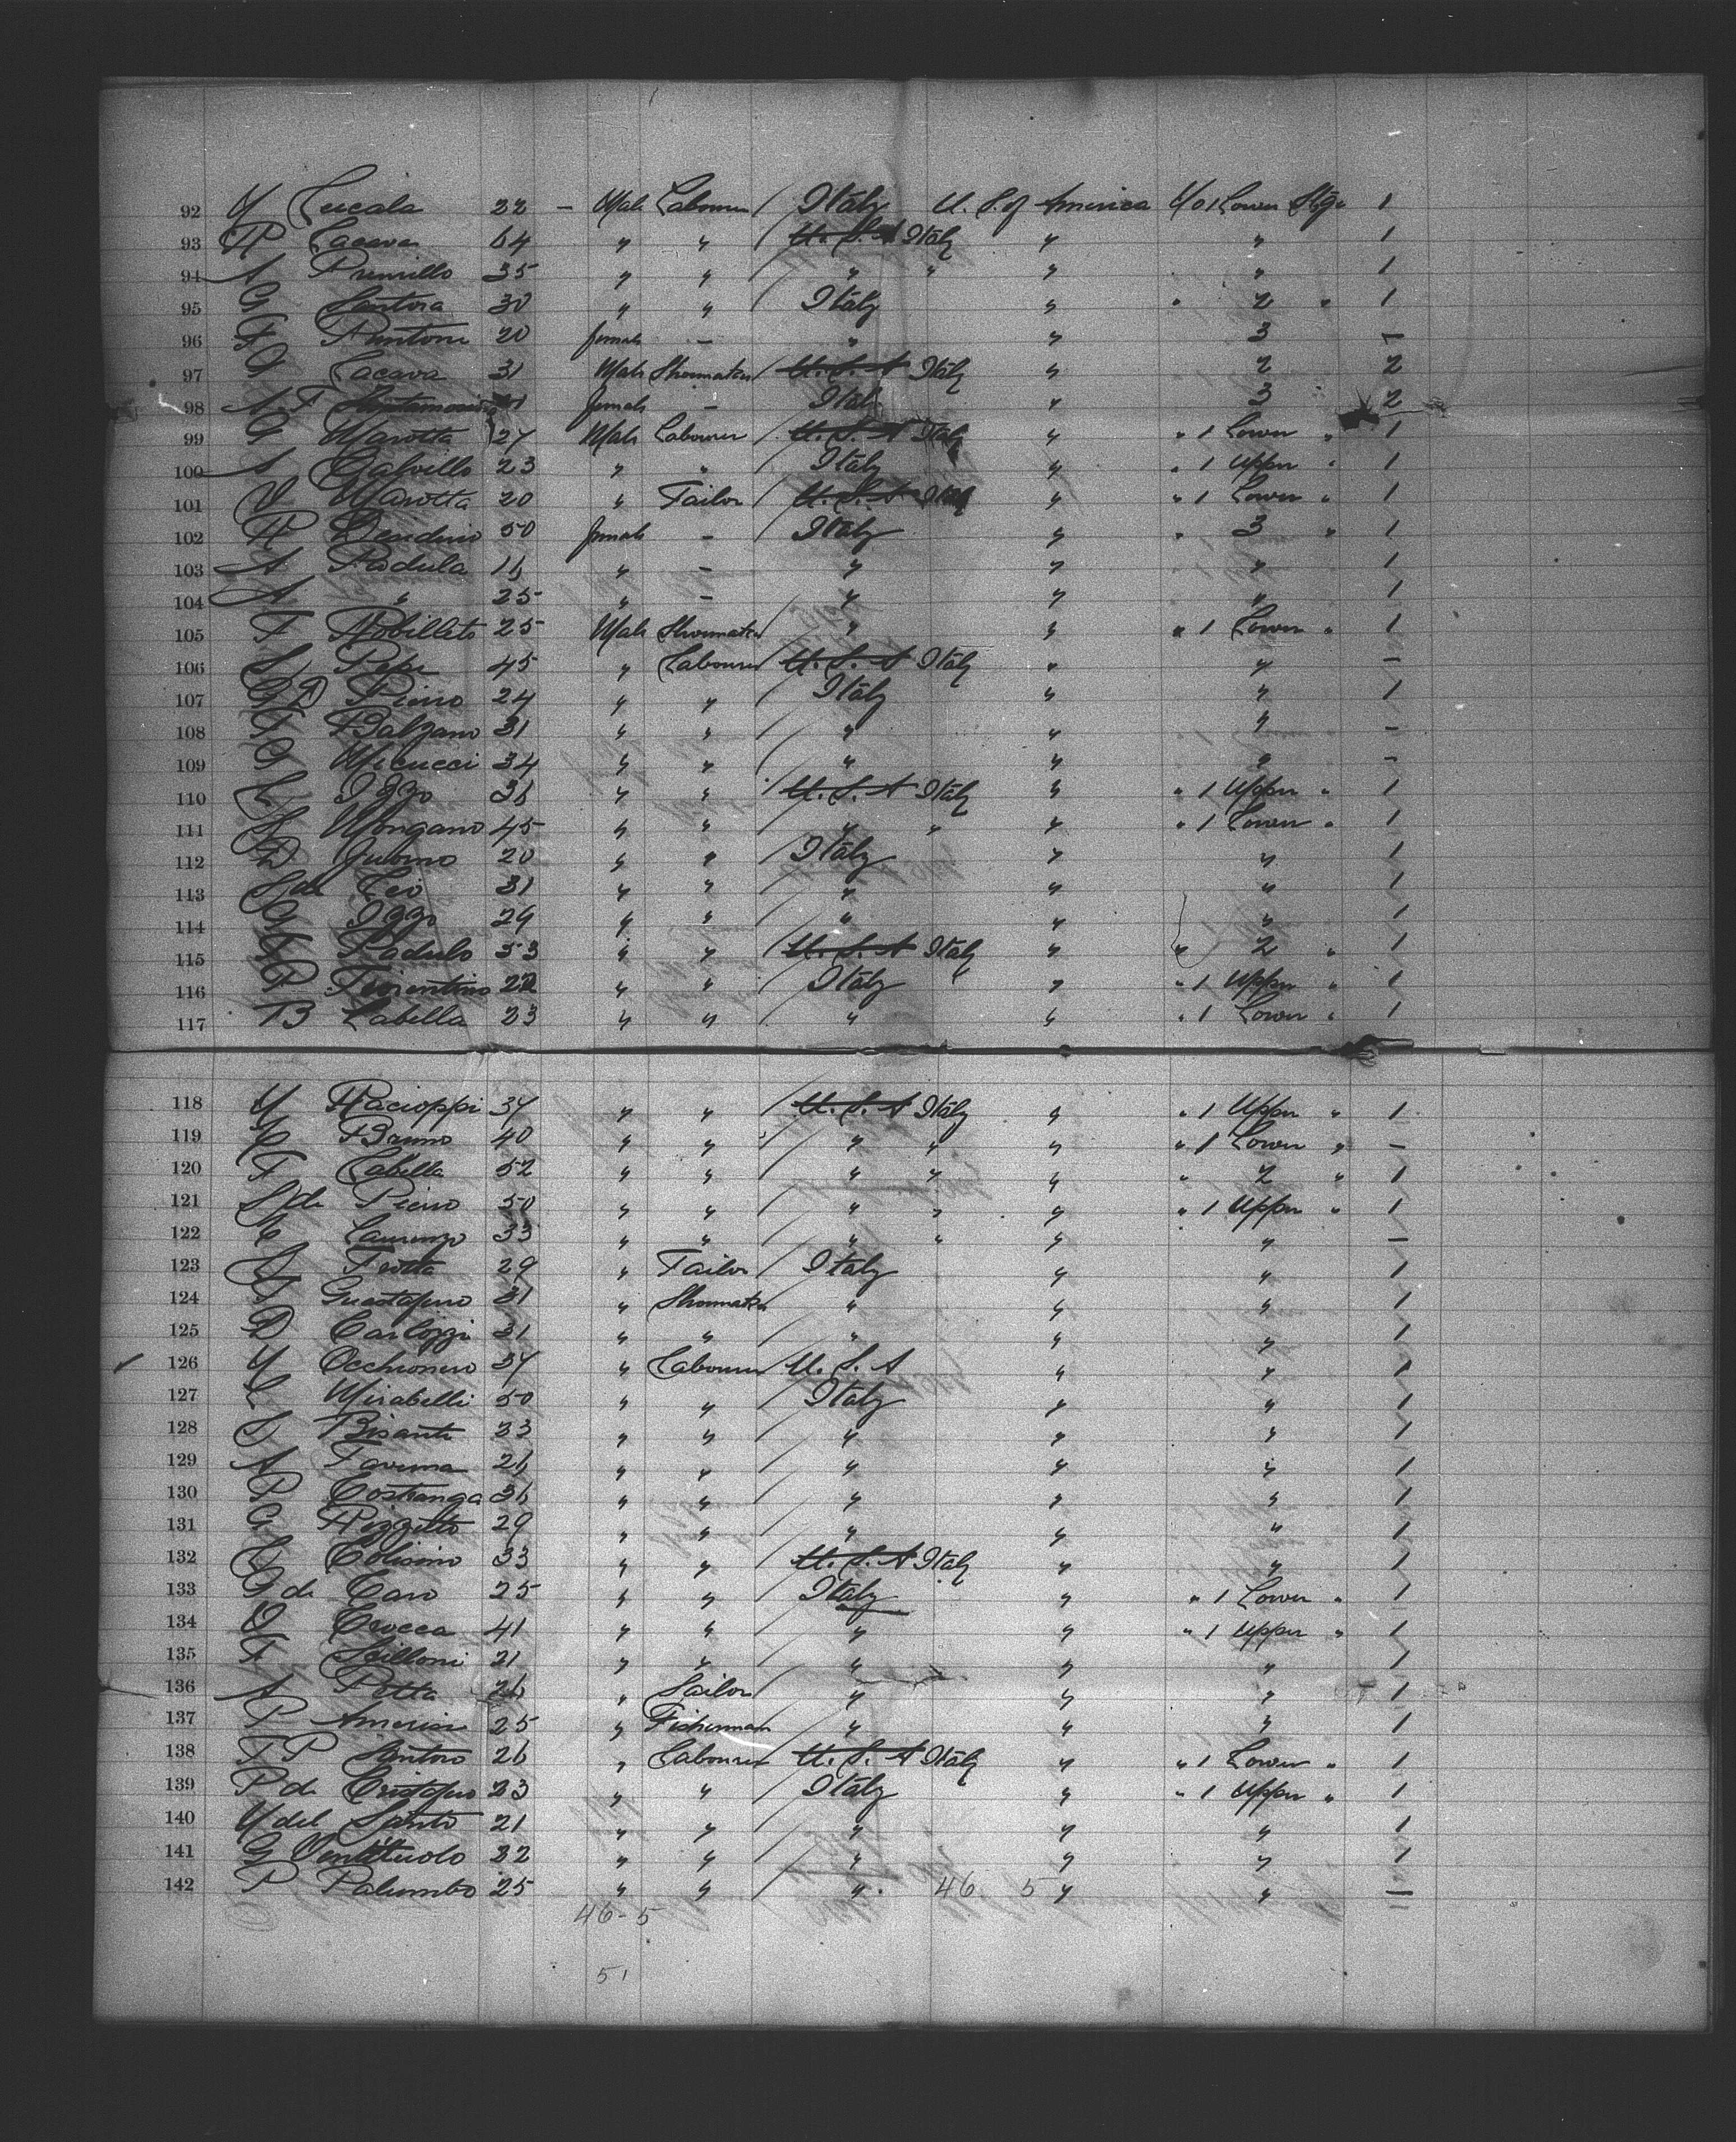 92 Lucala 22 – Male Labourer / Italy U. S. of America No 1 Lower Stge 1
93 Lacava 64 " " / U. S. A Italy " " 1
94 A 35 " " / " " " " 1
95 G Santora 30 " " / Italy " " 2 " 1
96 F 20 female – " " 3 –
97 G Lacava 31 Male Shoemaker / U. S. A Italy " 2 2
98 A F female – Italy " 3 2
99 G Marotta 27 Male Labourer U. S. A Italy " " 1 Lower " 1
100 A 23 " " / Italy " " 1 Upper " 1
101 V Marotta 20 " Tailor / U. S. A Italy " " 1 Lower " 1
102 50 female – Italy " " 3 " 1
103 A Padula 16 " – " " " 1
104 A " 25 " – / " " " 1
105 F 25 Male Shoemaker " " " 1 Lower " 1
106 Pepe 45 " Labourer U. S. A Italy " " –
107 G D Pierro 24 " " Italy " " 1
108 F Balzano 31 " " / " " " –
109 G Micucci 34 " " / " " " –
110 L Izzo 36 " " U. S. A Italy " " 1 Upper " 1
111 Mongano 45 " " / " " " " 1 Lower " 1
112 D 20 " " Italy " " 1
113 S de Leo 31 " " / " " " 1
114 G Izzo 29 " " / " " " 1
115 F Padulo 53 " " / U. S. A Italy " " 2 " 1
116 P Fiorentino 22 " " / Italy " " 1 Upper " 1
117 B Labella 23 " " / " " " 1 Lower " 1
118 Racioppi 34 " " / U. S. A Italy " " 1 Upper " 1
119 C Bruno 40 " " / " " " " 1 Lower " –
120 F Labella 52 " " / " " " " 2 " 1
121 S de Pierro 50 " " / " " " " 1 Upper " 1
122 C Laurenzo 33 " " / " " " " –
123 Trotta 29 " Tailor / Italy " " 1
124 31 " Shoemaker " " " 1
125 D Carlozzi 31 " " / " " " 1
126 Occhionero 34 " Labourer U. S. A " " 1
127 L Mirabelli 50 " " Italy " " 1
128 Bisanti 33 " " / " " " 1
129 A Taverna 26 " " / " " " 1
130 P Costranga 36 " " / " " " 1
131 G 29 " " / " " " 1
132 Colisino 33 " " U. S. A Italy " " 1
133 G de Caro 25 " " / Italy " " 1 Lower " 1
134 Crocca 41 " " / " " " 1 Upper " 1
135 F Silloni 21 " " / " " " 1
136 A Petta 26 " Sailor " " " 1
137 P 25 " Fisherman " " " 1
138 F P Santoro 26 " Labourer U. S. A Italy " " 1 Lower " 1
139 P de 23 " " / Italy " " 1 Upper " 1
140 del Santo 21 " " / " " " 1
141 G 32 " " / " " " 1
142 P Palumbo 25 " " / " 46 5 " " –
46 - 5
51